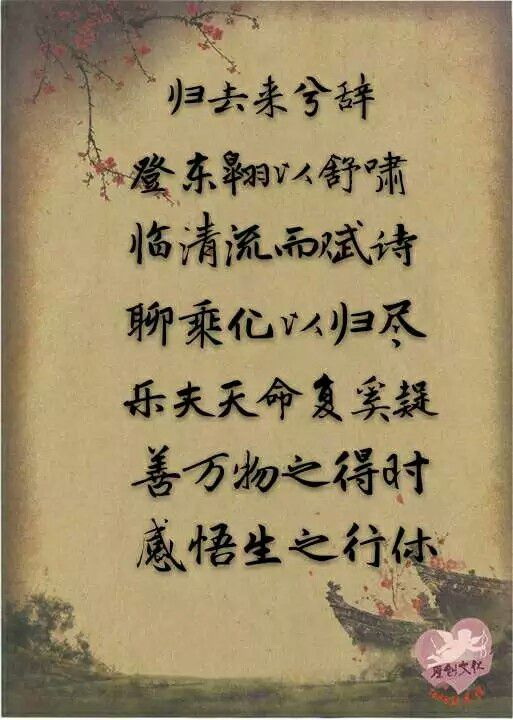 归去来兮辞
登东翱以舒啸
临清流而赋诗
聊乘化以归尽
乐夫天命复奚疑
善万物之得时
感悟生之行休